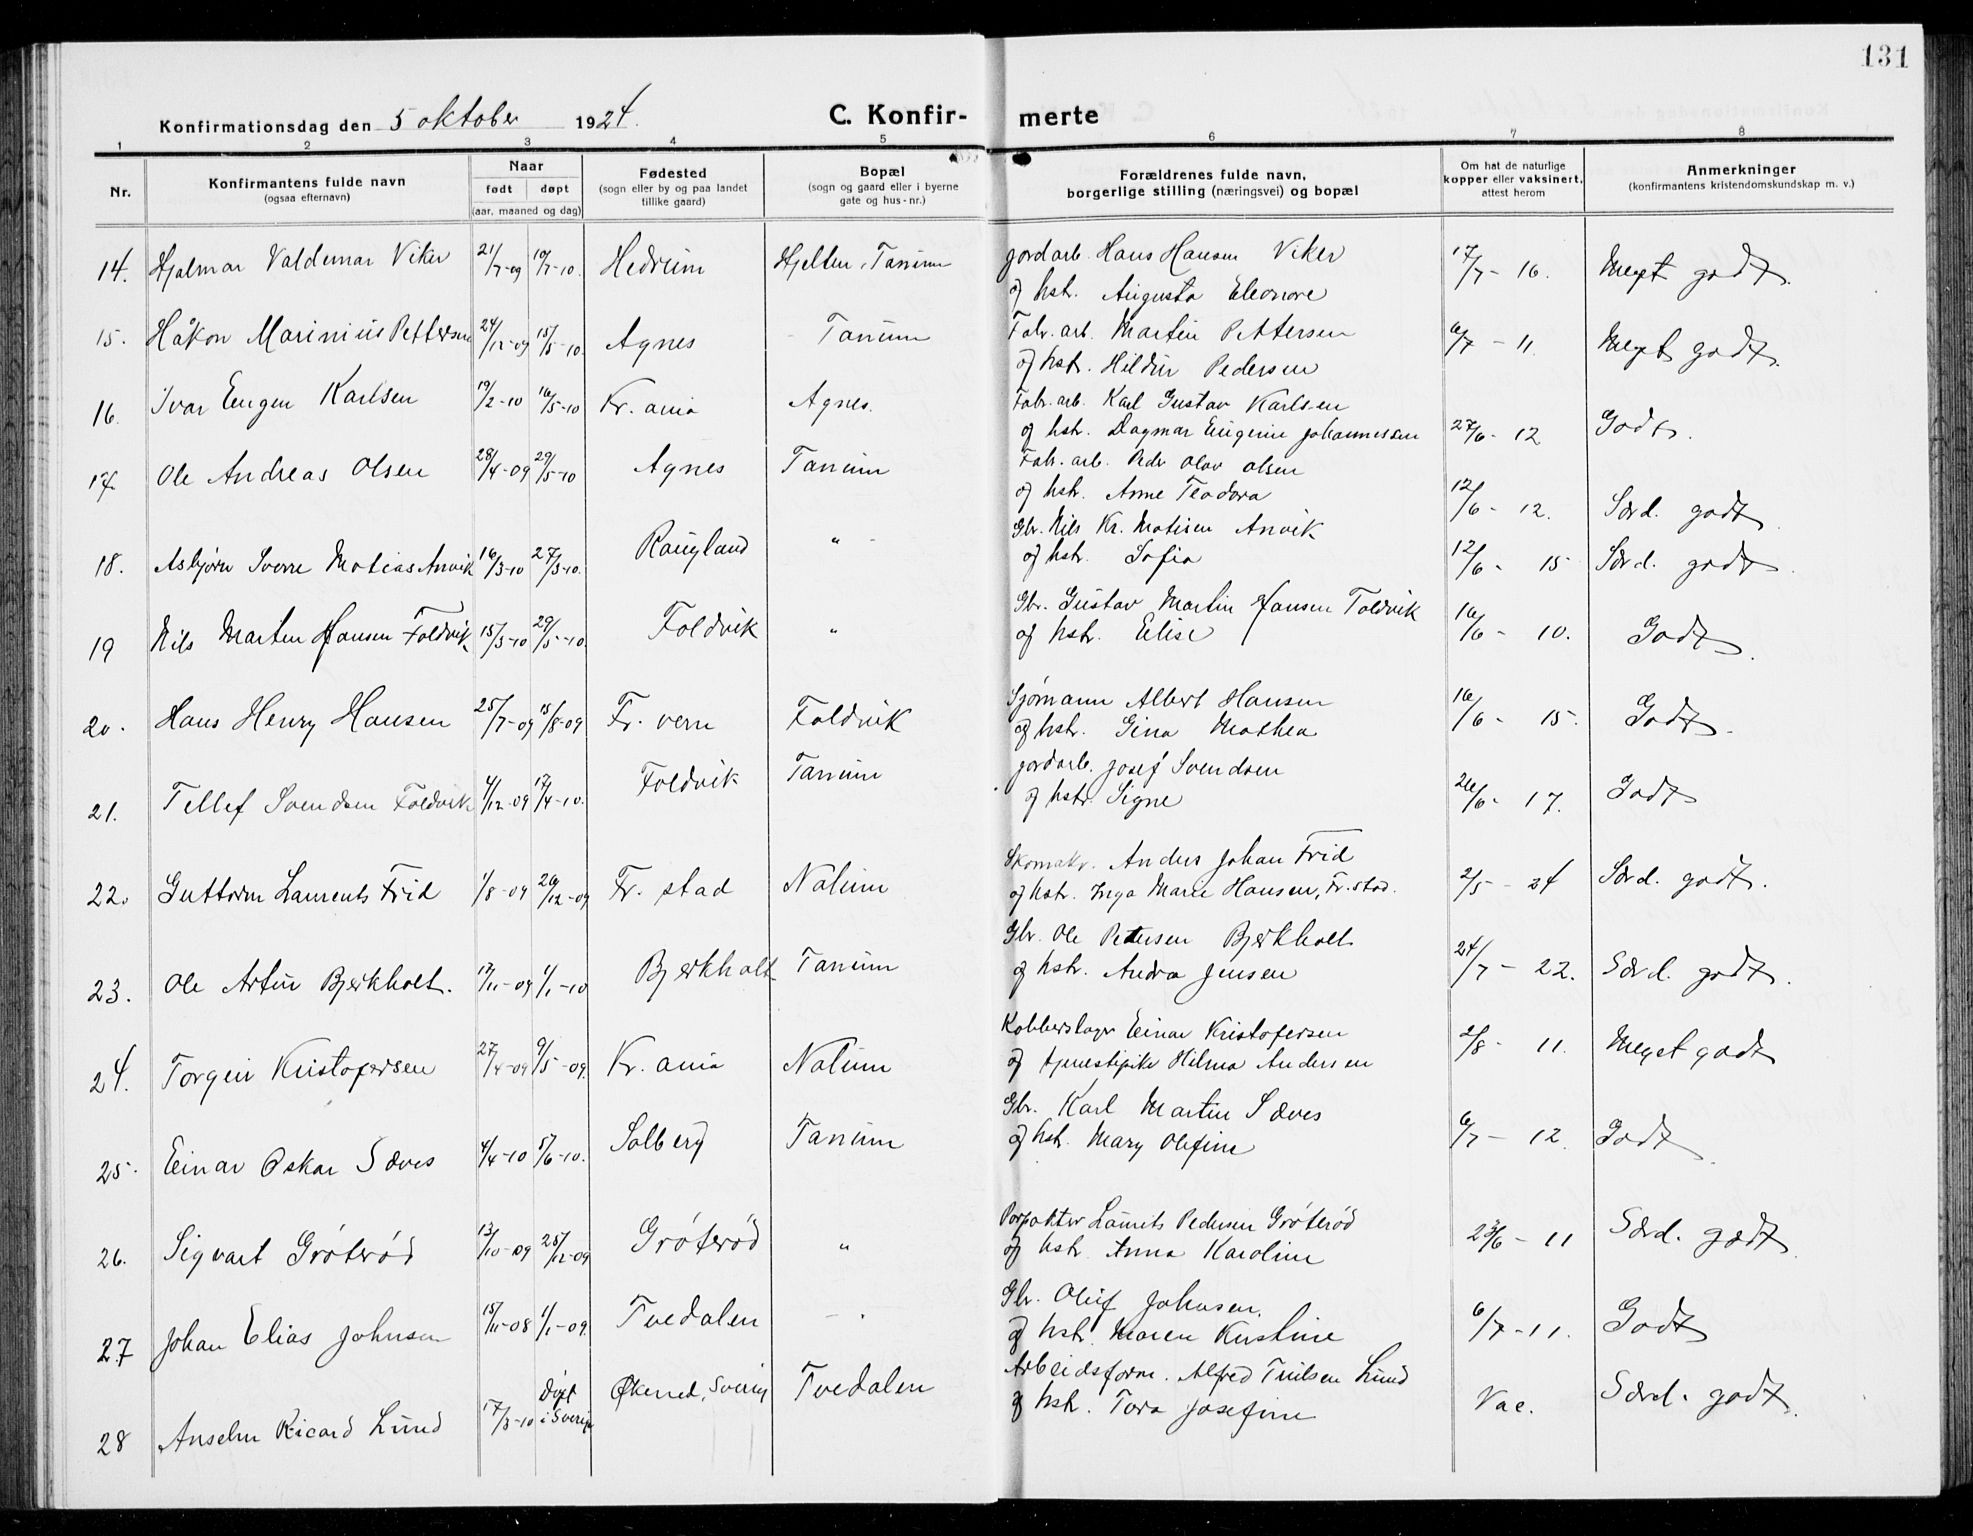 131
Konfirmationsdag den 5 oktober 1924. C. Konfir- merte
1 2 3 4 5 6 7 8
Nr. Konfirmantens fulde navn (ogsaa efternavn) Naar født døpt (aar, maaned og dag) Fødested (sogn eller by og paa landet tillike gaard) Bopæl (sogn og gaard eller i byerne gate og hus-nr.) Forældrenes fulde navn, borgerlige stilling (næringsvei) og bopæl Om hat de naturlige kopper eller vaksinert, attest herom Anmerkninger (konfirmantens kristendomskundskap m. v.)
14. Hjalmar Valdemar Viker 21/7-09 10/7-10. Hedrum Hjelten, Tanum Jordarb. Hans Hansen Viker 17/7-16. Meget godt.
og hstr. Augusta Eleonore
15. Håkon Marinius Pettersen 24/12-09 15/5-10. Agnes Tanum Fabr. arb. Martin Pettersen 6/7-11 Meget godt.
og hstr. Hildur Pedersen
16. Ivar Eugen Karlsen 19/2-10 16/5-10 Kr. ania Agnes. Fabr. arb. Karl Gustav Karlsen
og hstr. Dagmar Eugenie Johannessen 27/6-12 Godt.
17. Ole Andreas Olsen 28/4-09 29/5-10 Agnes Tanum Fabr. arb. Peder Olav Olsen
og hstr. Anne Teodora 12/6-12. Særd. godt
18. Asbjørn Sverre Matias Anvik 16/3-10 27/3-10. Raugland " Gbr. Nils Kr. Matisen Anvik
og hstr. Sofia 12/6-15 Særd. godt.
19 Nils Martin Hansen Foldvik 15/3-10 29/5-10. Foldvik " Gbr. Gustav Martin Hansen Foldvik 16/6-10. Godt.
og hstr. Elise
20. Hans Henry Hansen 25/7-09 15/8-09 Fr. vern Foldvik Sjømann Albert Hansen 16/6-15. Godt.
og hstr. Gina Mathea
21. Tellef Svendsen Foldvik 4/12-09 17/4-10. Foldvik Tanum Jordarb. Josef Svendsen
og hstr. Signe 26/6-17. Godt
22. Guttorm Laurents Frid 1/8-09 26/12-09 Fr. stad Nalum Skomakr. Anders Johan Frid 2/5-24 Særd. godt.
og hstr. Inga Marie Hansen, Fr. stad.
23. Ole Artur Bjerkholt. 13/11-09 1/1-10 Bjerkholt Tanum Gbr. Ole Petersen Bjerkholt 24/7-22. Særd. godt.
og hstr. Andra Jensen
24. Torgeir Kristofersen 27/4-09 9/5-09. Kr. ania Nalum Kobberslager Einar Kristofersen 2/8-11. Meget godt
og tjenestepike Hilma Andersen
25. Einar Oskar Sæves 4/4-10 5/6-10. Solberg Tanum Gbr. Karl Martin Sæves 6/7-12. Godt.
og hstr. Mary Olefine
26. Sigvart Gróterød 13/10-09 25/12-09 Gróterød " Forpakter Laurits Pedersen Gróterød 23/6-11 Særd. godt.
og hstr. Anna Karoline
27 Johan Elias Johnsen 15/11-08 1/1-09. Tvedalen Gbr. Oluf Johnsen. 6/7-11. Godt
og hstr. Maren Kristine
28 Anselm Ricard Lund 17/3-10 Døpt i Sverige Tvedalen Arbeidsform. Alfred Truilsen Lund Vac. Særd. godt.
og hstr. Tora Josefine